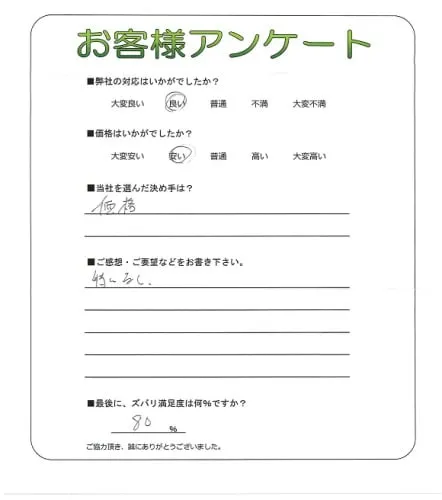 お客様アンケート
■弊社の対応はいかがでしたか?
大変良い 良い 普通 不満 大変不満
■価格はいかがでしたか?
大変安い 安い 普通 高い 大変高い
■当社を選んだ決め手は?
価格
■ご感想・ご要望などをお書き下さい。
特になし、
■最後に、ズバリ満足度は何%ですか?
80 %
ご協力頂き、誠にありがとうございました。